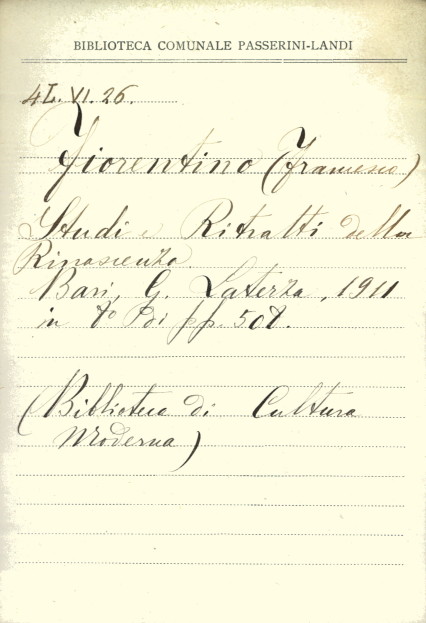 BIBLIOTECA COMUNALE PASSERINI-LANDI
4L. VI. 26.
Fiorentino (Francesco)
Studi e Ritratti della
Rinascenza.
Bari, G. Laterza, 1911
in 8° Pi pp. 508.
(Biblioteca di Cultura
Moderna)